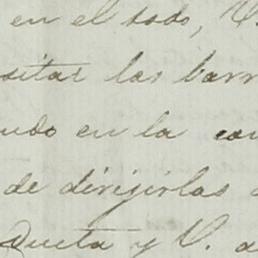 en el todo, V.
sitar las barr
ndo en la con
de dirijirlas a
Queta y V. a